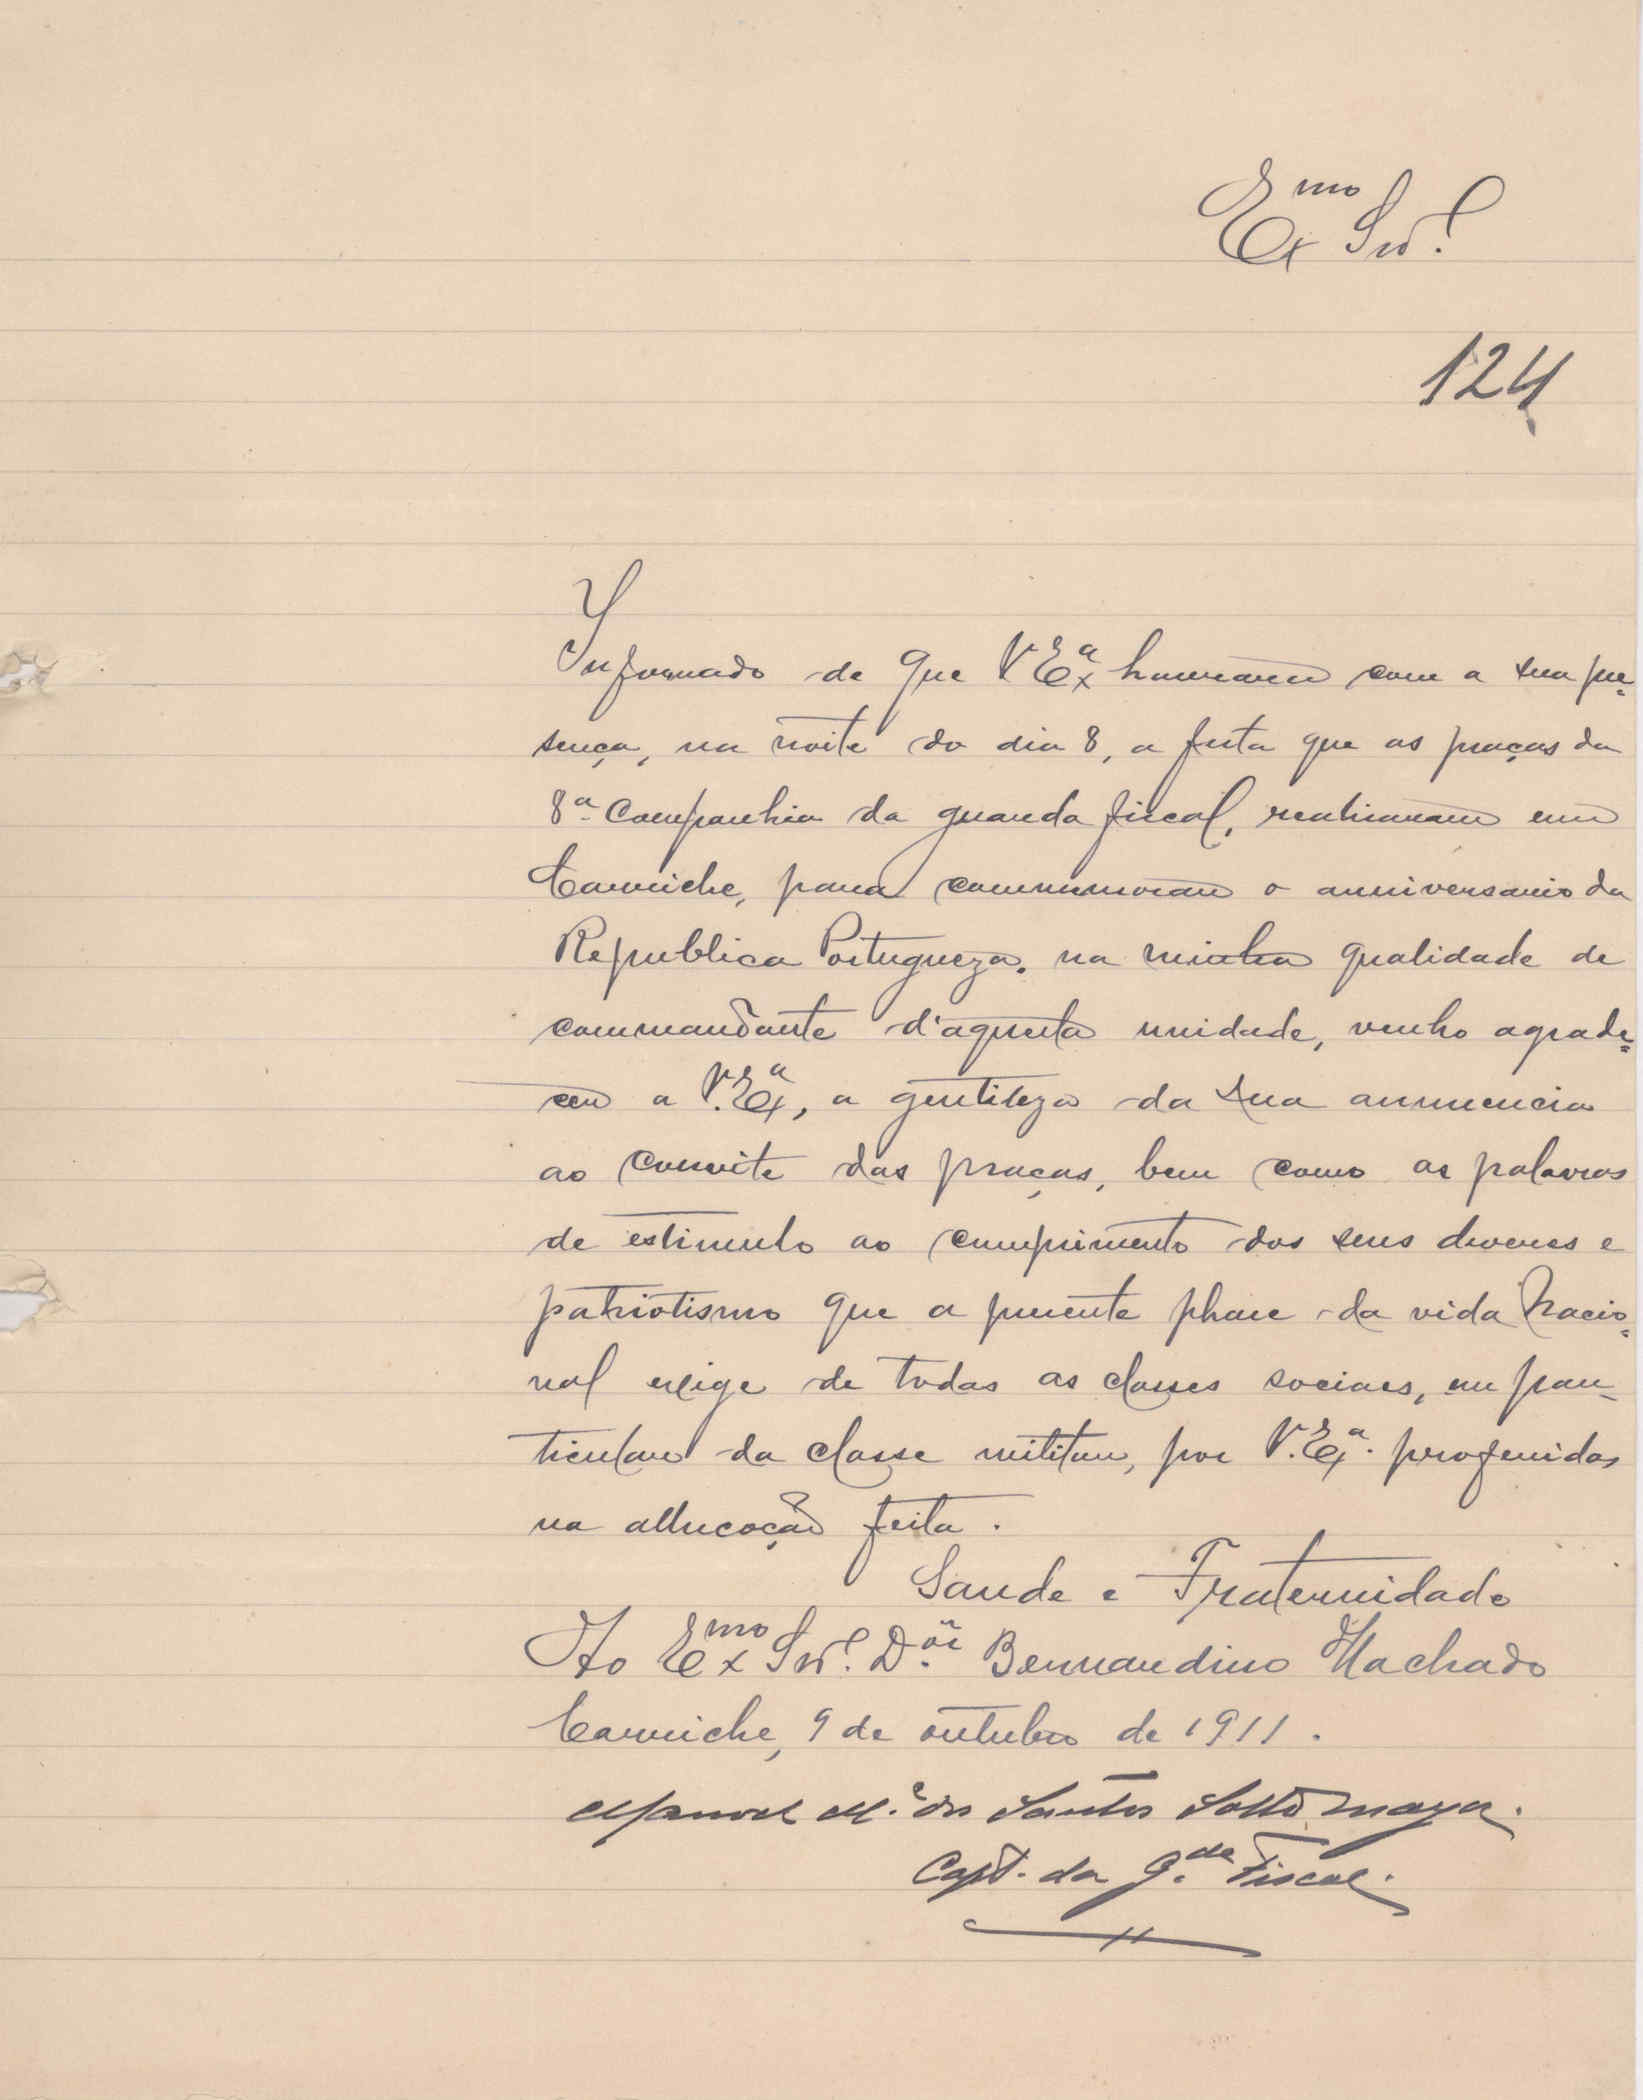 Ex.mo Snr.
124
Informado de que V. Exª honrara com a sua pre-
sença, na noite do dia 8, a festa que as praças da
8ª Companhia da guarda fiscal, realisaram em
Carriche, para commemorar o anniversario da
Republica Portugueza, na minha qualidade de
commandante d'aquesta unidade, venho agrade-
cer a V. Exª, a gentileza da sua annuencia
ao convite das praças, bem como as palavras
de estimulo ao cumprimento dos seus deveres e
patriotismo que a presente phase da vida Nacio-
nal exige de todas as classes sociaes, em par-
ticular da classe militar, por V. Exª. proferidas
na allucoção feita.
Saude e Fraternidade
Ao Ex.mo Snr. D.or Bernardino Machado
Carriche, 9 de outubro de 1911.
Manoel M.ª dos Santos Sotto mayor.
Capt. da G.da Fiscal.